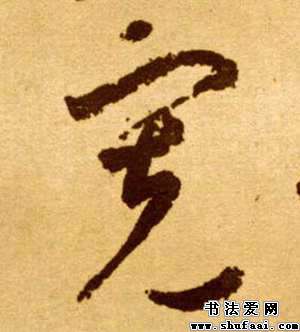 寬
书法爱网
www.shufaai.com